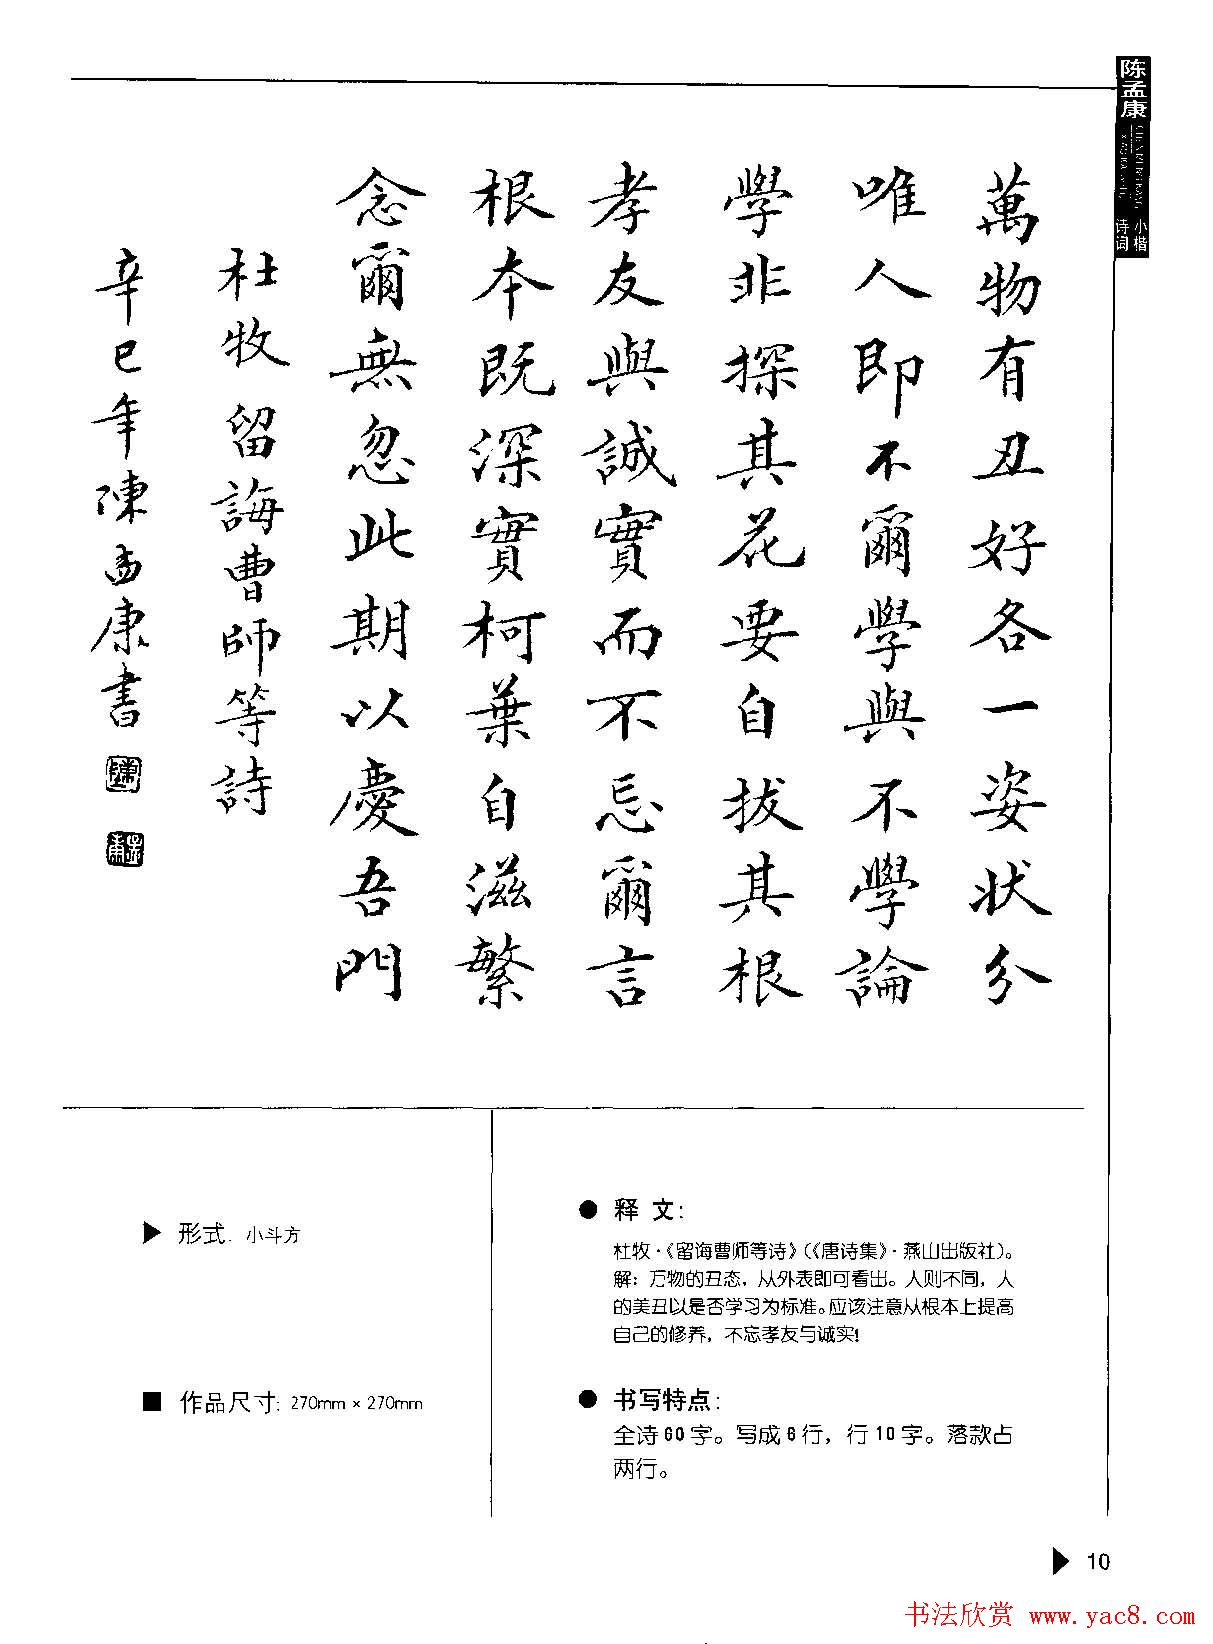 陈孟康
小楷
诗词
萬物有丑好各一姿狀分
唯人即不爾學與不學論
學非探其花要自拔其根
孝友與誠實而不忌爾言
根本既深實柯葉自滋繁
念爾無忽此期以慶吾門
杜牧留誨曹師等詩
辛巳年陳孟康書
▶ 形式. 小斗方
■ 作品尺寸: 270mm × 270mm
● 释 文:
杜牧·《留诲曹师等诗》(《唐诗集》·燕山出版社)。
解: 万物的丑态, 从外表即可看出。人则不同, 人
的美丑以是否学习为标准。应该注意从根本上提高
自己的修养, 不忘孝友与诚实!
● 书写特点:
全诗60字。写成6行, 行10字。落款占
两行。
▶ 10
书法欣赏 www.yac8.com